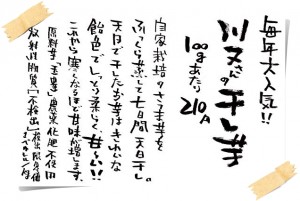 毎年大人気!!
川又さんの干し芋
100gあたり210円
自家栽培のさつま芋を
ふっくら蒸して七日間天日干し。
天日で干したお芋はきれいな
飴色でしっとり柔らく、甘～い!!
これから寒くなるほど甘味が増します。
原料芋「玉豊」農薬化肥不使用
放射性物質「不検出」検出限界値